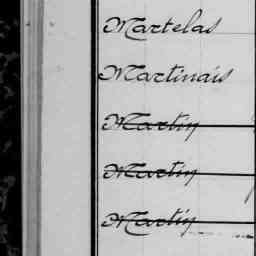 Martelas
Martinais
Martin
Martin
Martin